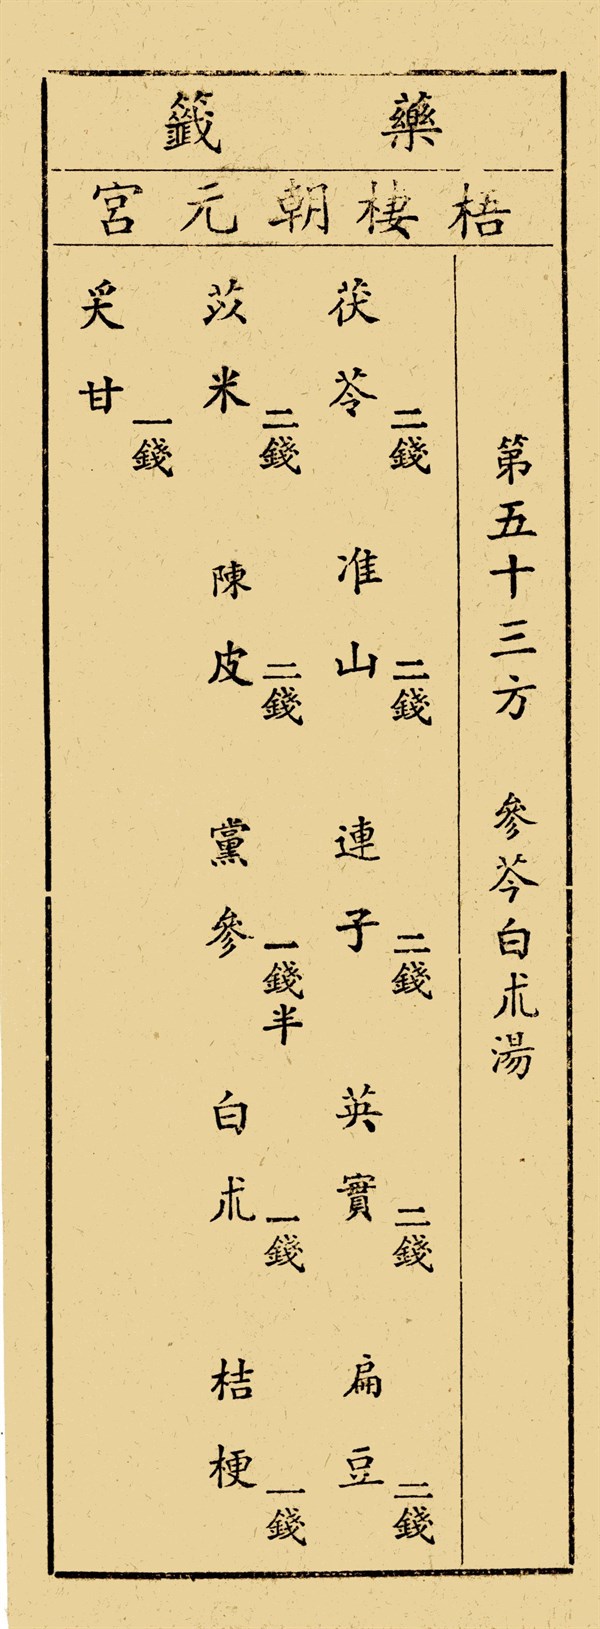 藥籤
梧棲朝元宮
第五十三方 參芩白朮湯
茯苓 二錢 准山 二錢 連子 二錢 英實 二錢 扁豆 二錢
苡米 二錢 陳皮 二錢 黨參 一錢半 白朮 一錢 桔梗 一錢
炙甘 一錢